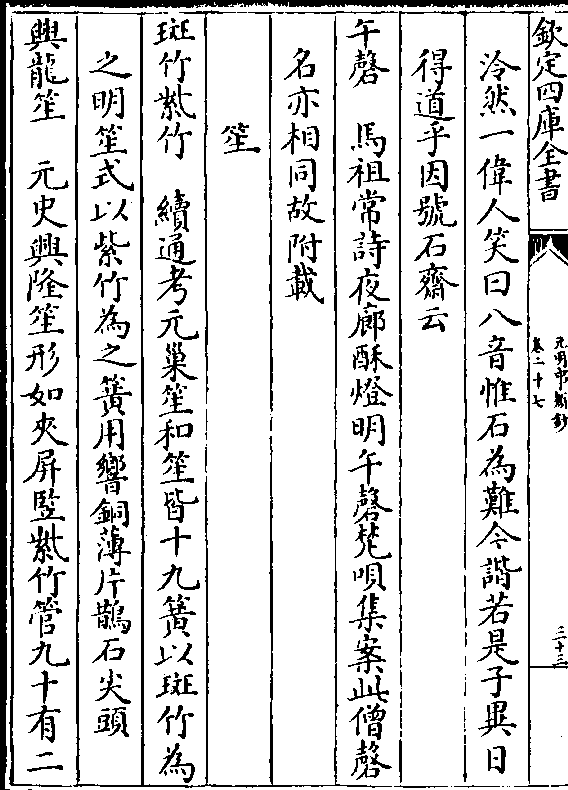 欽定四庫全書
元明事類鈔
卷二十七
三十三
泠然一偉人笑曰八音惟石為難今諧若是子異日
得道乎因號石齋云
午磬　馬祖常詩夜廊酥燈明午磬梵唄集案此僧磬
名亦相同故附載
笙
斑竹紫竹　續通考元巢笙和笙皆十九簧以斑竹為
之明笙式以紫竹為之簧用響銅薄片鵲石尖頭
興龍笙　元史興隆笙形如夾屏竪紫竹管九十有二